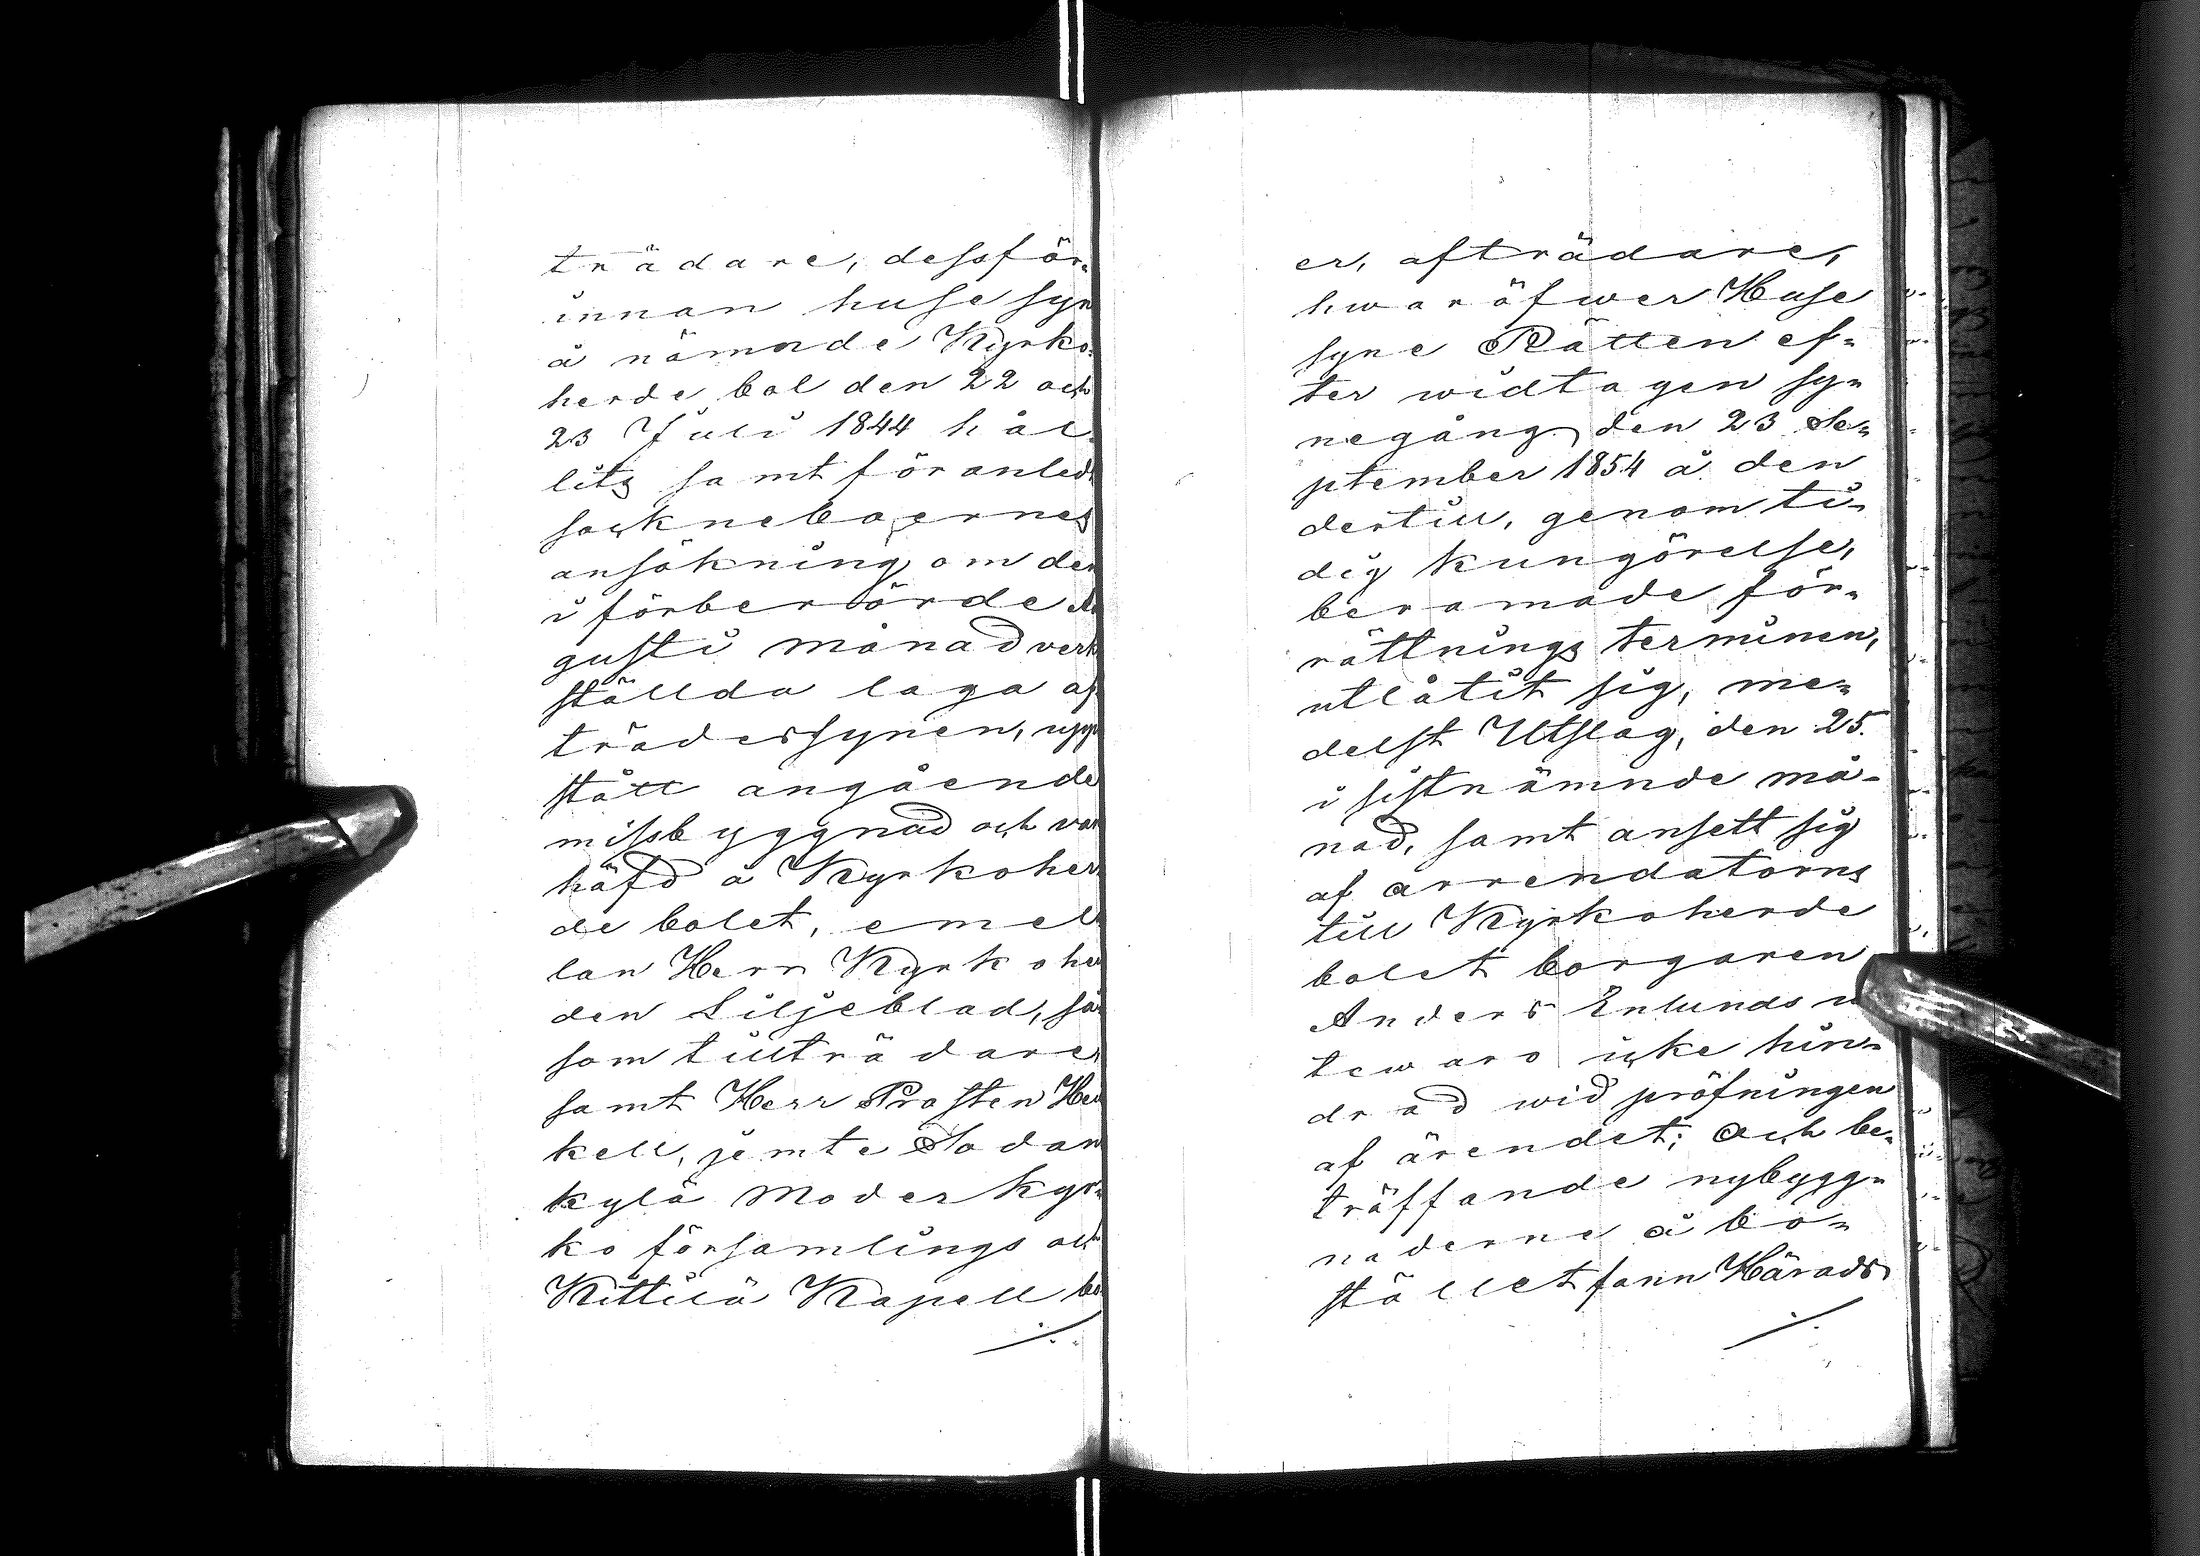 trädare, dessför=
innan huse syn
å nämnde Kyrko=
herde bol den 22 och
23 Julii 1844 hål=
lits samt föranledt
sockneboernes
ansökning om den
i förberörde Au
gusti månad verk
ställda laga af
trädessynen, upp
stått angående
missbyggnad och van
häfd å Kyrkoher
de bolet, emel
lan Herr Kyrkoher
den Liljeblad, så
som tillträdare,
samt Herr Prosten Hei
kell, jemte Sodan
kylä Moder kyr=
ko församlings och
Kittilä Kapell bo
./.
er, afträdare,
hwaröfwer Huse
syne Rätten ef=
ter widtagen sy=
negång den 23 Se=
ptember 1854 å den
dertill, genom ti=
dig kungörelse,
beramade för=
rättnings terminen,
utlåtit sig, me=
delst Utslag, den 25.
i sistnämnde må=
nad, samt ansett sig
af arrendatorns
till Kyrkoherde
bolet borgaren
Anders Enlunds u
tewaro icke hin=
drad wid pröfningen
af ärendet; Och be=
träffande nybygg=
naderne å bo=
stället fann Härads
./.